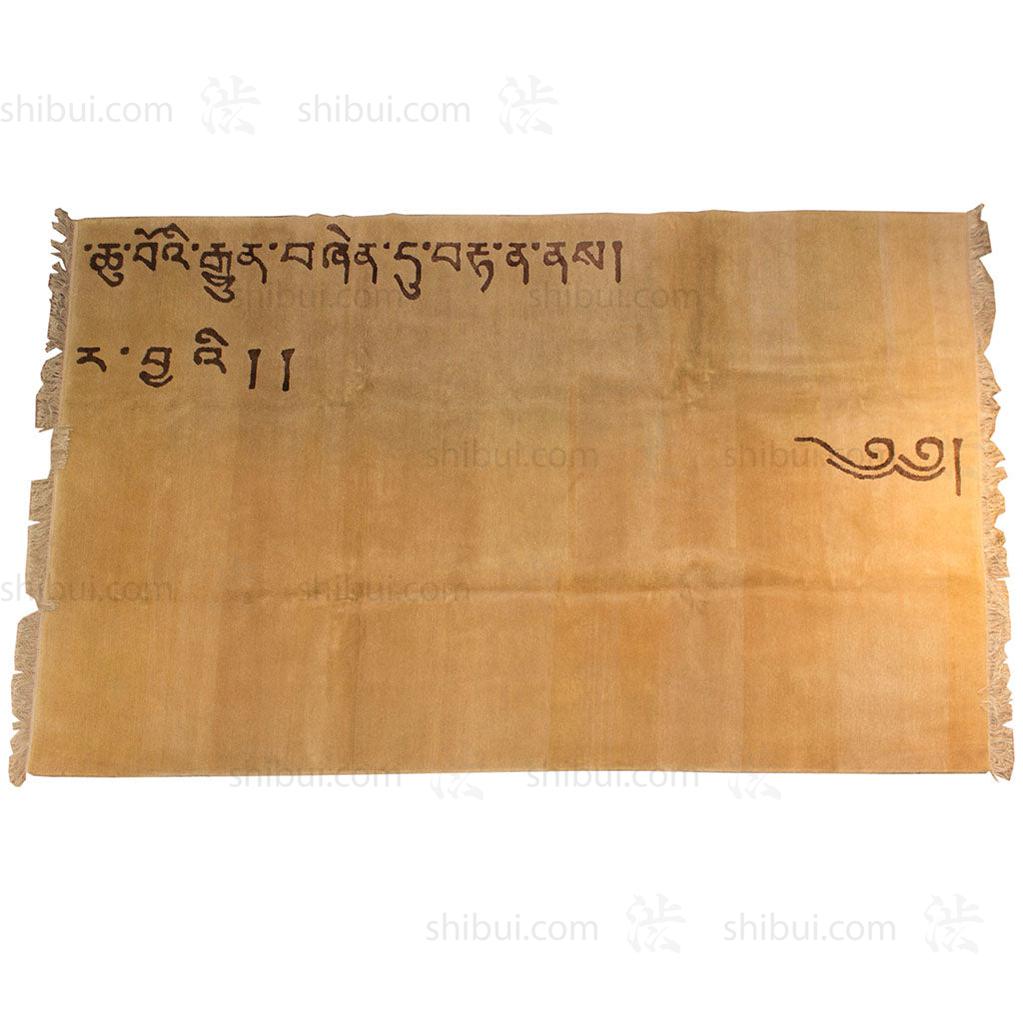 shibui.com 渋 shibui.com 渋
་ཆུ་བོའི་རྒྱུན་བཞིན་དུ་བརྟ་ན་ནས།
shibui.com shibui.com
ར་བྱ་འི།།
shibui.com shibui.com
༄༅།
shibui.com shibui.com
shibui.com shibui.com
shibui.com 渋 shibui.com 渋